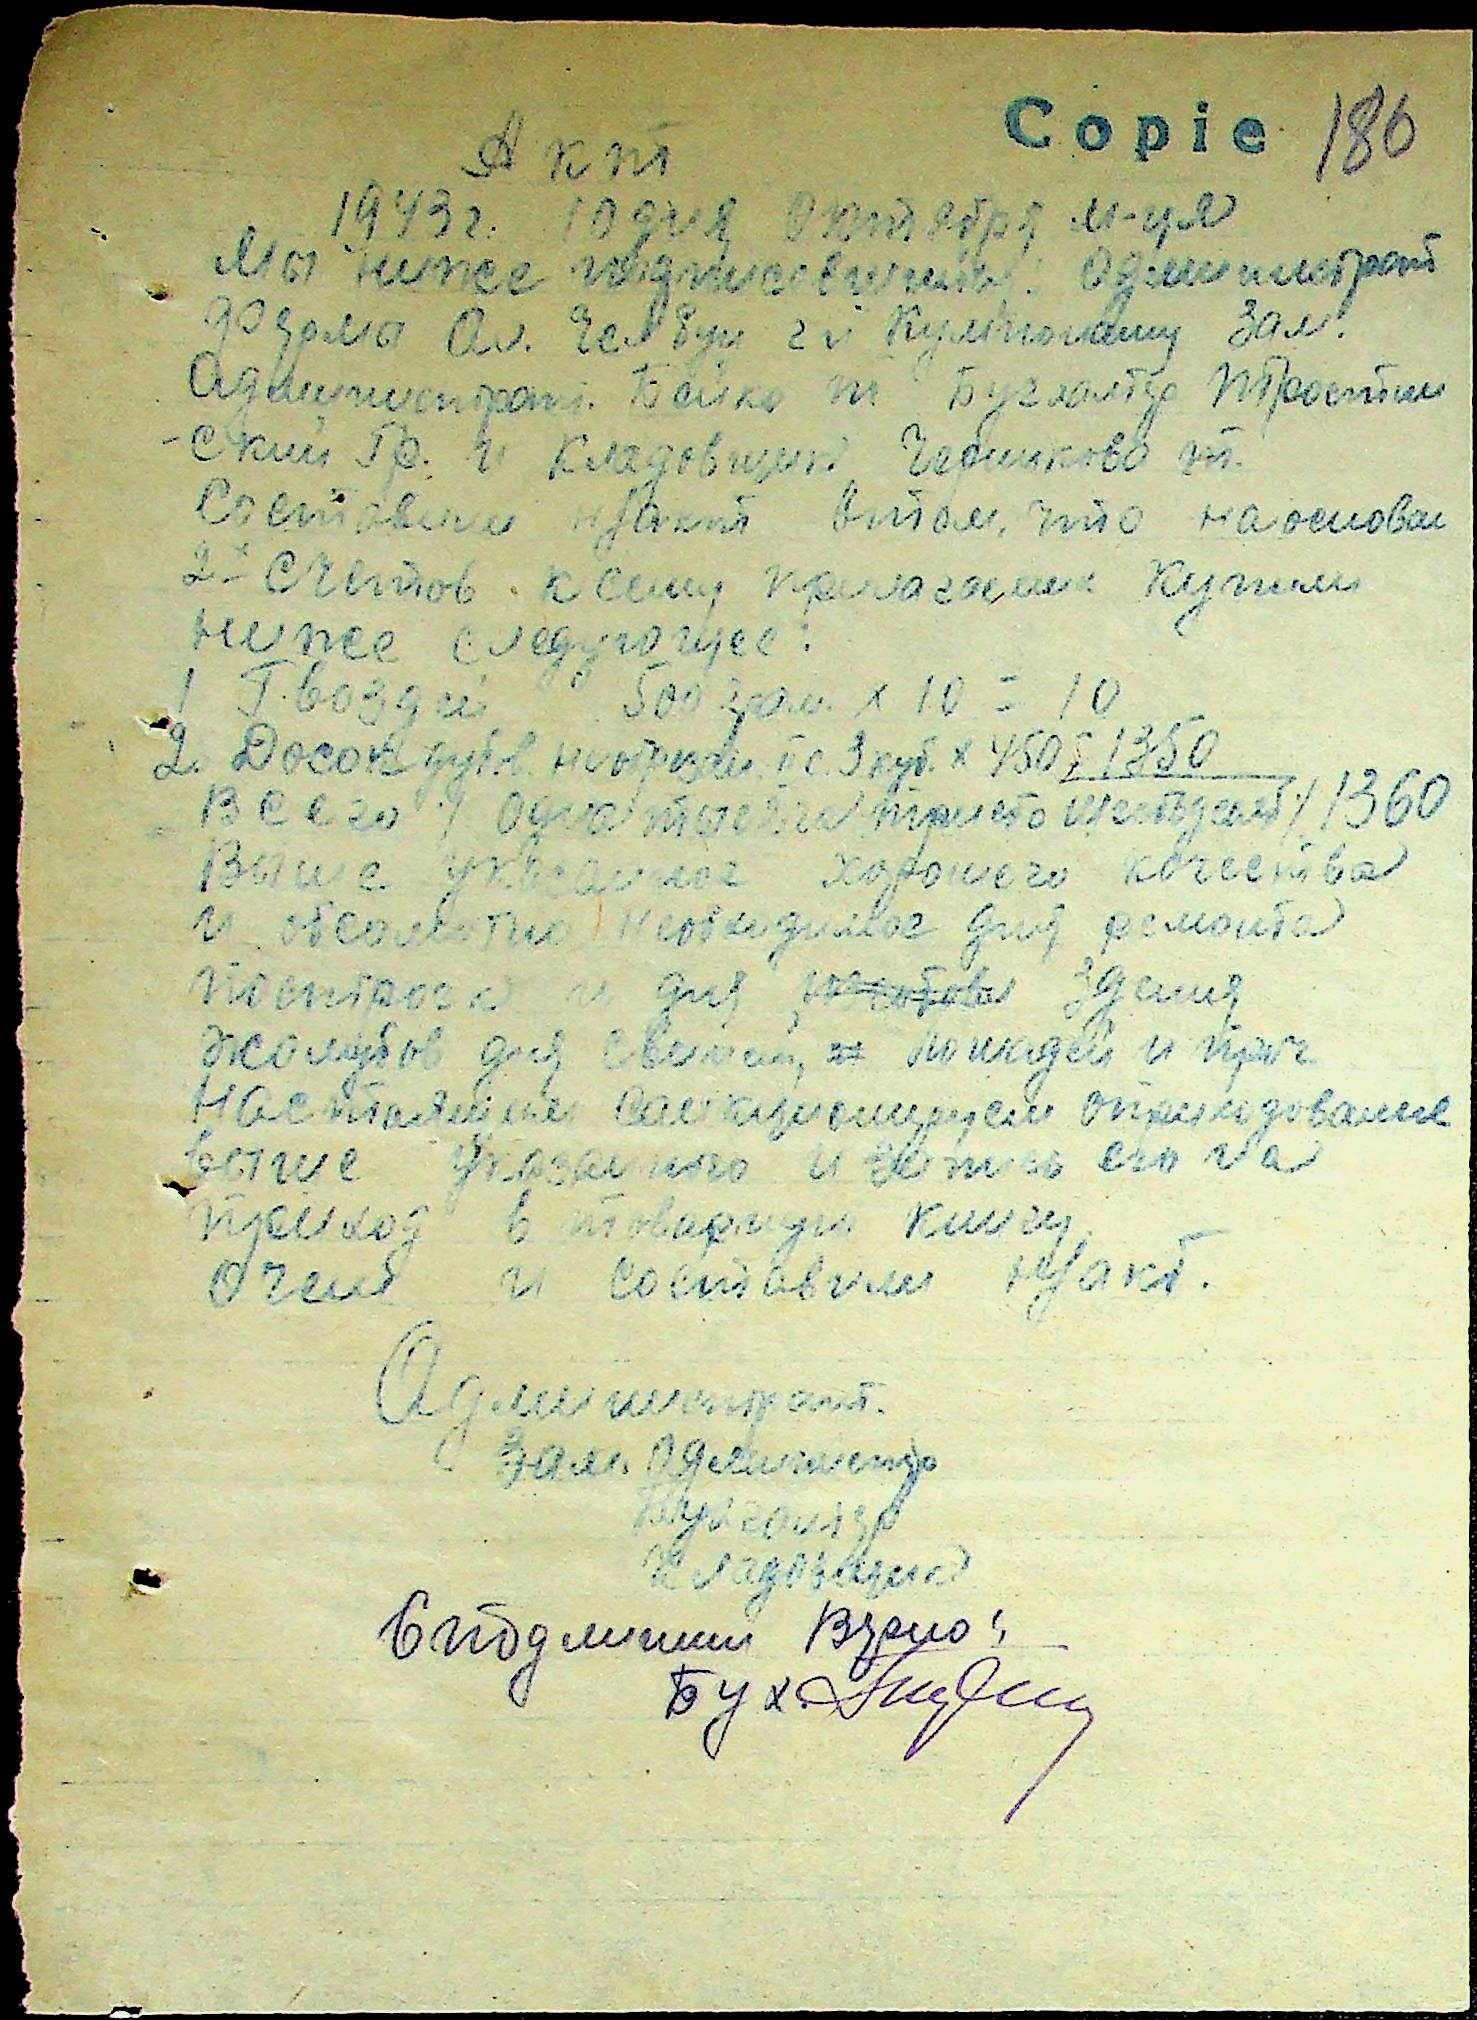 Copie 186
Акт
1943 г. 10 дня Октября м-ця
Мы ниже подписавшиеся: Администрат
Ал. Зам.
Администрат. Бойко т Бухгалтер
-ский Гр. и Кладовщик т.
Составили н/акт втом, что на основан
2х счетов к сему прилагаемых купили
ниже следующее:
1 Гвоздей 500 грам. х 10 = 10
2. Досок дубов. 3 куб. х 450 = 1350
Всего / Одна тысяча триста шестдесят / 1360
Выше указанное хорошего качества
и обсолютно необходимое для ремонта
и для
жолубов для свиней, лошадей и проч
Настоящим санкционируем оприходование
выше указанного и запись его на
приход в товарную книгу
Очем и составили н/акт.
Администрат.
Зам. Администр
Бухгалтер
Кладовщик
Сподлиним Верно:
Бух.